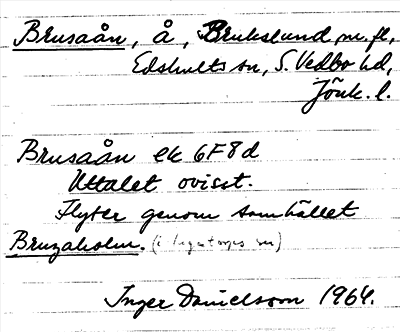 Brusaån, å, Brukslund m. fl,
Edshults sn, S. Vedbo hd,
Jönk. l.
Brusaån ek 6F8d
Uttalet ovisst.
Flyter genom samhället
Bruzaholm. (i Ingatorps sn)
Inger Danielsson 1964.